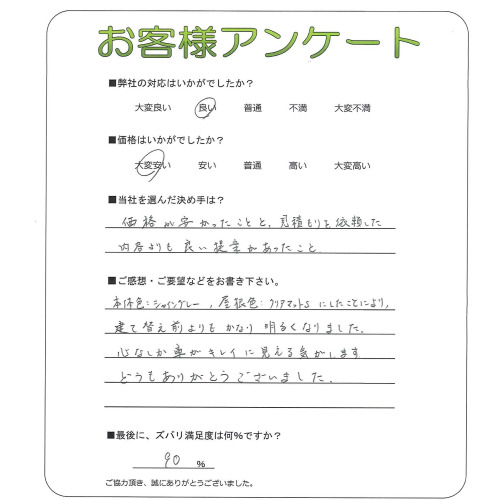 お客様アンケート
■弊社の対応はいかがでしたか？
大変良い 良い 普通 不満 大変不満
■価格はいかがでしたか？
大変安い 安い 普通 高い 大変高い
■当社を選んだ決め手は？
価格が安かったことと、見積もりを依頼した
内容よりも良い提案があったこと
■ご感想・ご要望などをお書き下さい。
本体色：シャイングレー，屋根色：クリアマットS にしたことにより、
建て替え前よりもかなり明るくなりました。
心なしか車がキレイに見える気がします
どうもありがとうございました。
■最後に、ズバリ満足度は何％ですか？
90 ％
ご協力頂き、誠にありがとうございました。